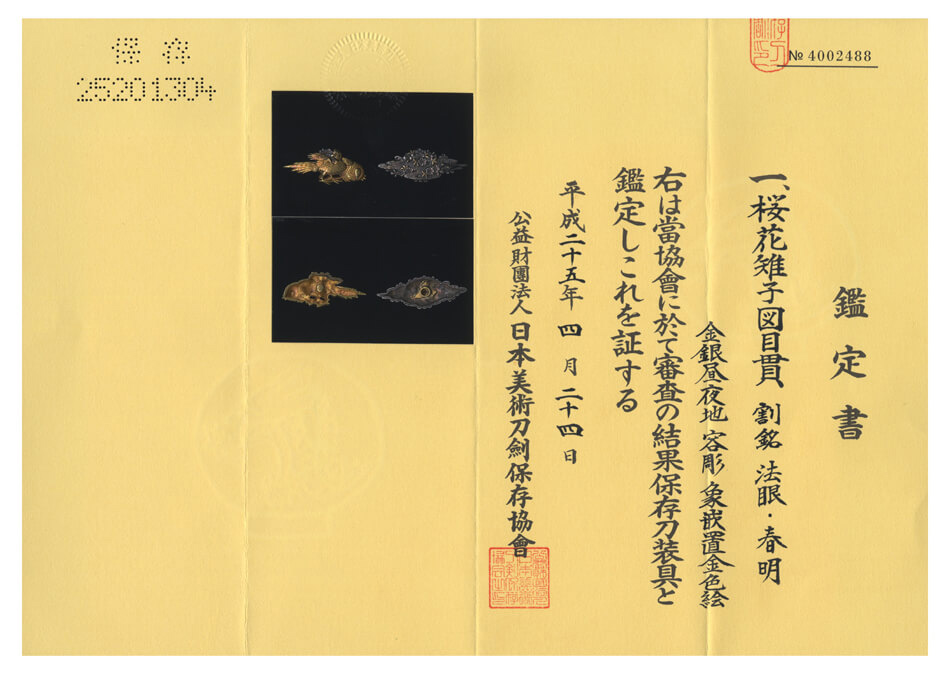 鑑定書
№ 4002488
一、桜花雉子図目貫 割銘 法眼・春明
金銀昼夜地 容彫 象嵌置金色絵
右は當協會に於て審査の結果保存刀装具と
鑑定しこれを証する
平成二十五年 四月二十四日
公益財團法人 日本美術刀劍保存協會
保存
25201304